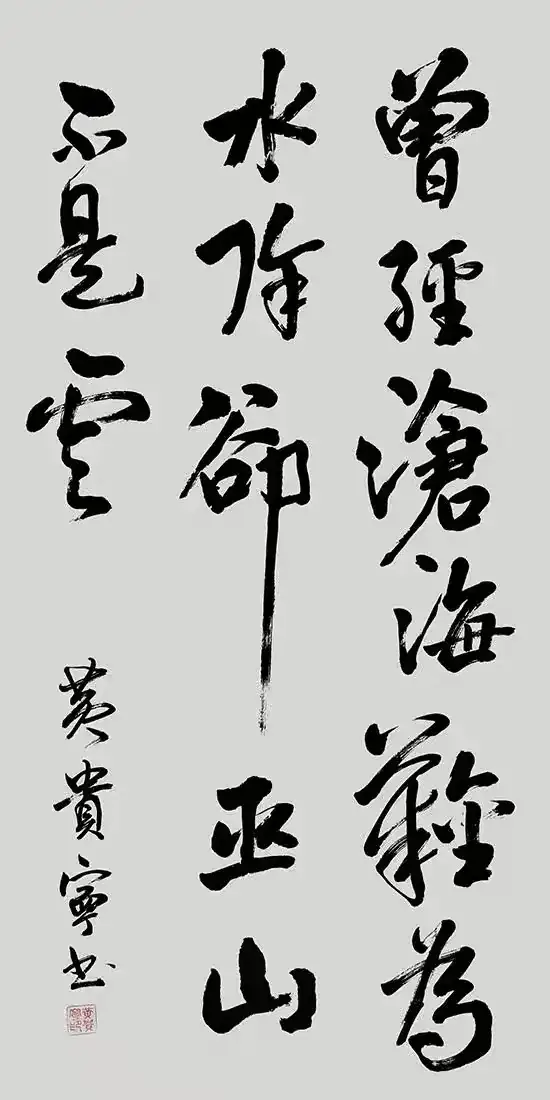 曾經滄海難為
水除卻巫山
不是雲
黃貴寧書